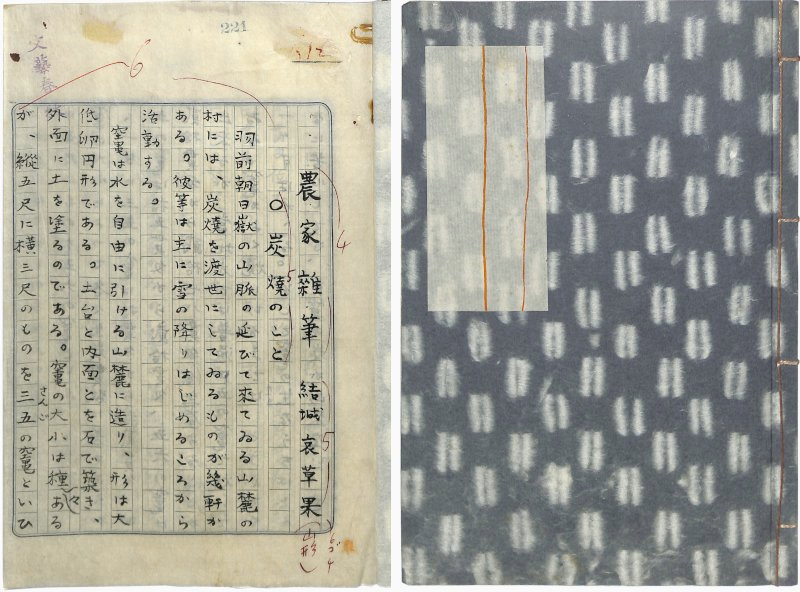 221
12
文藝春
6
農家雜筆 結城哀草果
(山形)
4
5
6ゴ4
○炭燒のこと
5
羽前朝日嶽の山脈の延びて來てゐる山麓の
村には、炭燒を渡世にしてゐるものが幾軒か
ある。彼等は主に雪の降りはじめるころから
活動する。
窯は水を自由に引ける山麓に造り、形は大
低卵円形である。土台と内面とを石で築き、
外面に土を塗るのである。窯の大小は種々ある
が、縱五尺に横三尺のものを三五の窯といひ
さんご